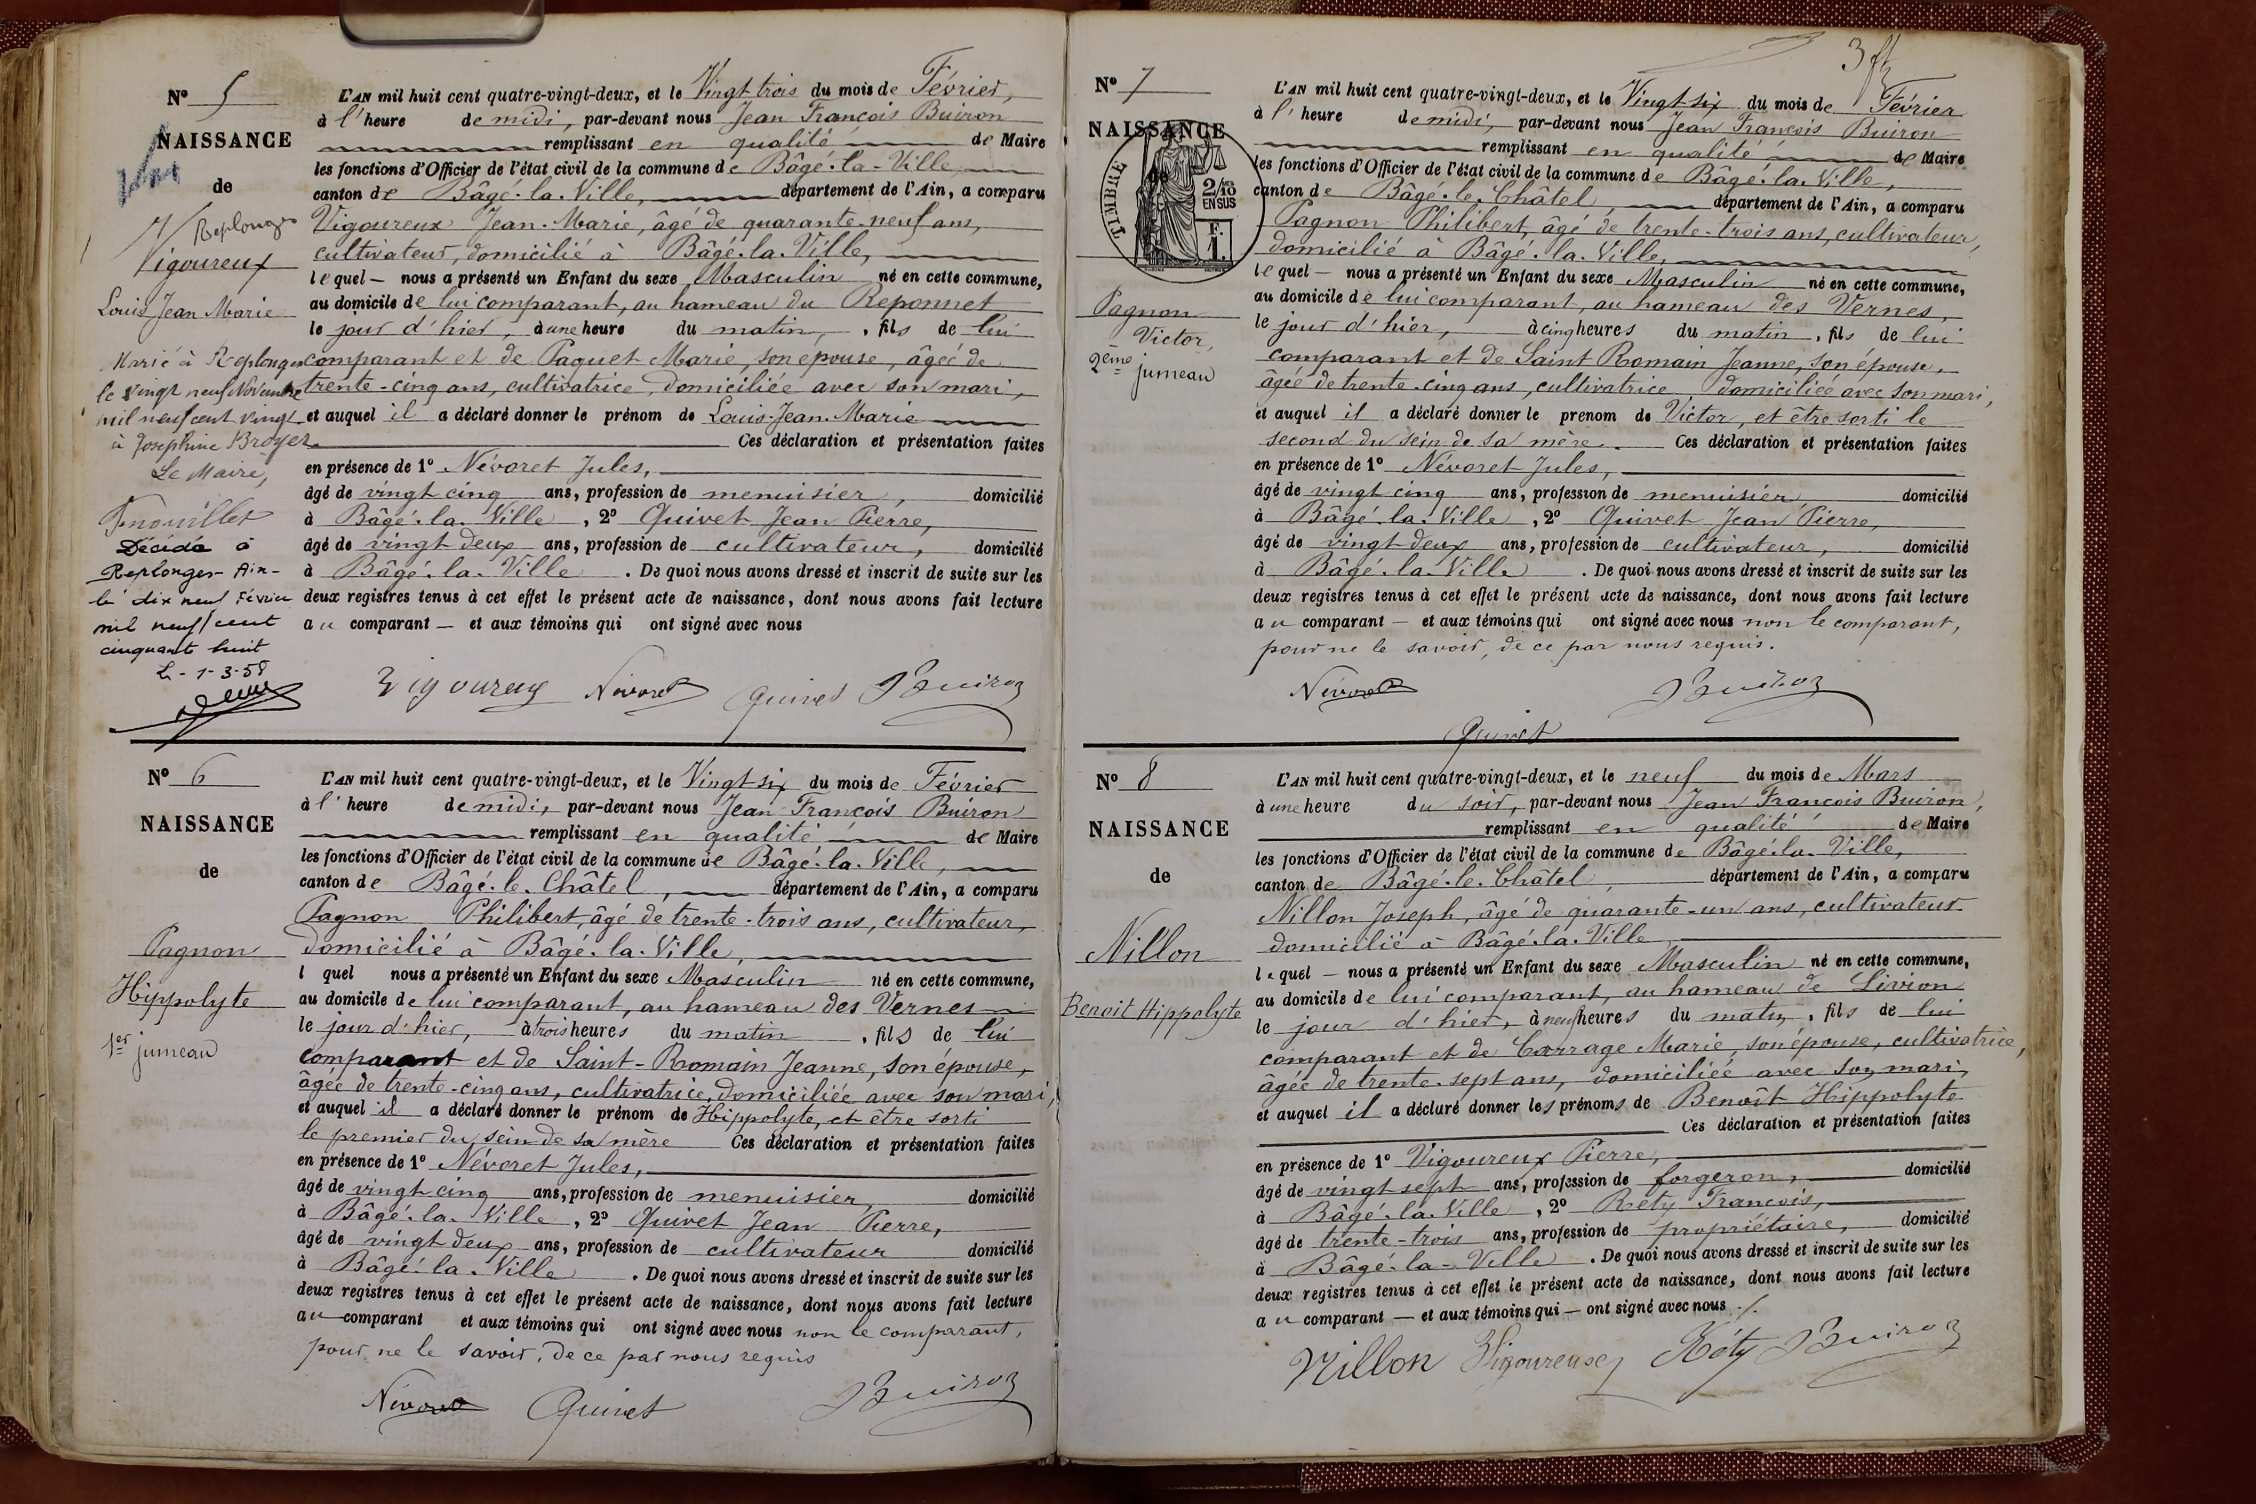 N° 5
NAISSANCE
de
Replonges
Vigoureux
Louis Jean Marie
Marié à Replonges
le vingt neuf Novembre
mil neuf cent vingt
à Joséphine Broyer
Le Maire,
Décédé à
Replonges - Ain -
le dix neuf Février
mil neuf cent
cinquante huit
L - 1-3-58
L'AN mil huit cent quatre-vingt-deux, et le Vingt trois du mois de Février,
à l'heure de midi, par-devant nous Jean François Buiron
remplissant en qualité de Maire
les fonctions d'Officier de l'état civil de la commune de Bâgé-la-Ville,
canton de Bâgé-la-Ville, département de l'Ain, a comparu
Vigoureux Jean-Marie, âgé de quarante-neuf ans,
cultivateur, domicilié à Bâgé-la-Ville,
lequel nous a présenté un Enfant du sexe Masculin né en cette commune,
au domicile de lui comparant, au hameau du Reponnet
le jour d'hier, à une heure du matin, fils de lui
comparant et de Paquet Marie, son épouse, âgée de
trente-cinq ans, cultivatrice, domiciliée avec son mari,
et auquel il a déclaré donner le prénom de Louis-Jean-Marie
Ces déclaration et présentation faites
en présence de 1° Névoret Jules,
âgé de vingt cinq ans, profession de menuisier, domicilié
à Bâgé-la-Ville, 2° Quivet Jean Pierre,
âgé de vingt deux ans, profession de cultivateur, domicilié
à Bâgé-la-Ville. De quoi nous avons dressé et inscrit de suite sur les
deux registres tenus à cet effet le présent acte de naissance, dont nous avons fait lecture
au comparant — et aux témoins qui ont signé avec nous
Vigoureux Névoret Quivet Buiron
N° 6
NAISSANCE
de
Pagnon
Hippolyte
1er jumeau
L'AN mil huit cent quatre-vingt-deux, et le Vingt six du mois de Février
à l'heure de midi, par-devant nous Jean François Buiron
remplissant en qualité de Maire
les fonctions d'Officier de l'état civil de la commune de Bâgé-la-Ville,
canton de Bâgé-le-Châtel, département de l'Ain, a comparu
Pagnon Philibert, âgé de trente-trois ans, cultivateur,
domicilié à Bâgé-la-Ville,
l quel nous a présenté un Enfant du sexe Masculin né en cette commune,
au domicile de lui comparant, au hameau des Vernes
le jour d'hier, à trois heures du matin, fils de lui
comparant et de Saint-Romain Jeanne, son épouse,
âgée de trente-cinq ans, cultivatrice, domiciliée avec son mari,
et auquel il a déclaré donner le prénom de Hippolyte, et être sorti
le premier du sein de sa mère Ces déclaration et présentation faites
en présence de 1° Névoret Jules,
âgé de vingt cinq ans, profession de menuisier, domicilié
à Bâgé-la-Ville, 2° Quivet Jean Pierre,
âgé de vingt deux ans, profession de cultivateur domicilié
à Bâgé-la-Ville. De quoi nous avons dressé et inscrit de suite sur les
deux registres tenus à cet effet le présent acte de naissance, dont nous avons fait lecture
au comparant et aux témoins qui ont signé avec nous non le comparant,
pour ne le savoir, de ce par nous requis
Névoret Quivet Buiron
N° 7
NAISSANCE
TIMBRE
2/10
EN SUS
F.
1.
Pagnon
Victor,
2ème jumeau
L'AN mil huit cent quatre-vingt-deux, et le Vingt six du mois de Février
à l'heure de midi, par-devant nous Jean François Buiron
remplissant en qualité de Maire
les fonctions d'Officier de l'état civil de la commune de Bâgé-la-Ville,
canton de Bâgé-le-Châtel, département de l'Ain, a comparu
Pagnon Philibert, âgé de trente-trois ans, cultivateur,
domicilié à Bâgé-la-Ville,
lequel — nous a présenté un Enfant du sexe Masculin né en cette commune,
au domicile de lui comparant, au hameau des Vernes,
le jour d'hier, à cinq heures du matin, fils de lui
comparant et de Saint Romain Jeanne, son épouse,
âgée de trente-cinq ans, cultivatrice domiciliée avec son mari,
et auquel il a déclaré donner le prenom de Victor, et être sorti le
second du sein de sa mère. Ces déclaration et présentation faites
en présence de 1° Névoret Jules,
âgé de vingt cinq ans, profession de menuisier domicilié
à Bâgé-la-Ville, 2° Quivet Jean Pierre,
âgé de vingt deux ans, profession de cultivateur, domicilié
à Bâgé-la-Ville. De quoi nous avons dressé et inscrit de suite sur les
deux registres tenus à cet effet le présent acte de naissance, dont nous avons fait lecture
au comparant — et aux témoins qui ont signé avec nous non le comparant,
pour ne le savoir, de ce par nous requis.
Névoret Buiron
Quivet
N° 8
NAISSANCE
de
Nillon
Benoit Hippolyte
L'AN mil huit cent quatre-vingt-deux, et le neuf du mois de Mars
à une heure du soir, par-devant nous Jean François Buiron,
remplissant en qualité de Maire
les fonctions d'Officier de l'état civil de la commune de Bâgé-la-Ville,
canton de Bâgé-le-Châtel, département de l'Ain, a comparu
Nillon Joseph, âgé de quarante-un ans, cultivateur
domicilié à Bâgé-la-Ville
lequel — nous a présenté un Enfant du sexe Masculin né en cette commune,
au domicile de lui comparant, au hameau de Livion
le jour d'hier, à neuf heures du matin, fils de lui
comparant et de Carrage Marie, son épouse, cultivatrice,
âgée de trente-sept ans, domiciliée avec son mari,
et auquel il a déclaré donner les prénoms de Benoît Hippolyte
Ces déclaration et présentation faites
en présence de 1° Vigoureux Pierre,
âgé de vingt sept ans, profession de forgeron, domicilié
à Bâgé-la-Ville, 2° Réty François,
âgé de trente-trois ans, profession de propriétaire, domicilié
à Bâgé-la-Ville. De quoi nous avons dressé et inscrit de suite sur les
deux registres tenus à cet effet le présent acte de naissance, dont nous avons fait lecture
au comparant — et aux témoins qui — ont signé avec nous
Nillon Vigoureux Réty Buiron